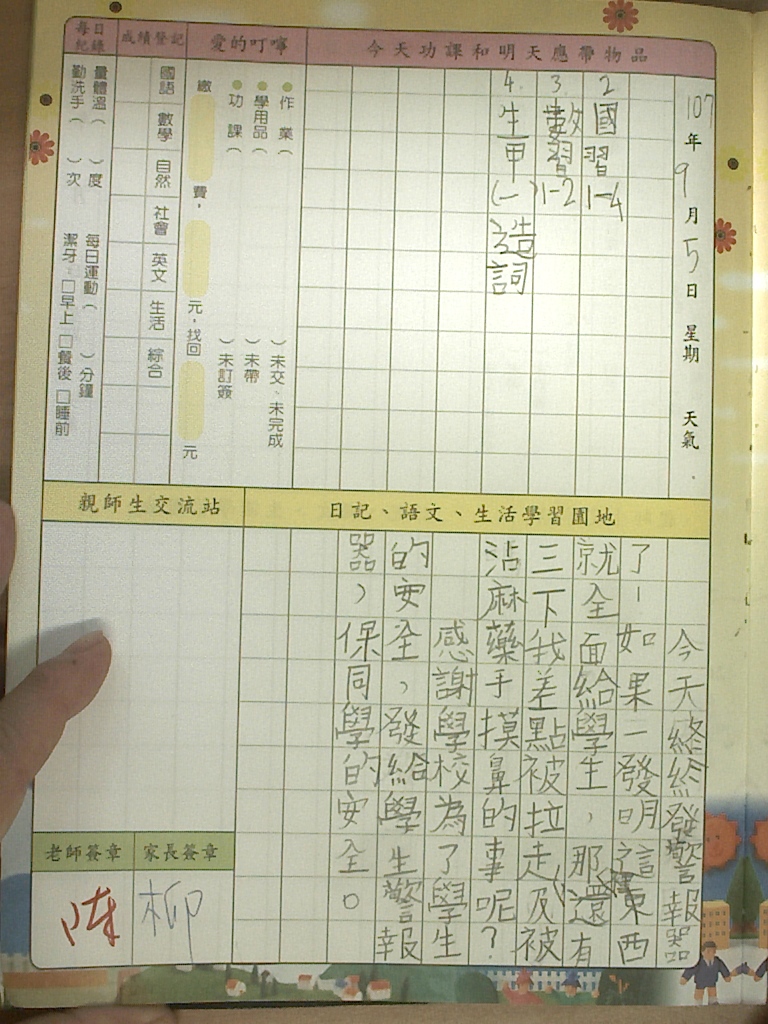 107年9月5日 星期 天氣
今天功課和明天應帶物品
2 國習1-4
3. 數習1-2
4. 生甲(一)造詞
愛的叮嚀
作業( )未交、未完成
學用品( )未帶
功課( )未訂簽
繳 費, 元,找回 元
成績登記
國語 數學 自然 社會 英文 生活 綜合
每日紀錄
量體溫( )度 每日運動( )分鐘
勤洗手( )次 潔牙:□早上□餐後□睡前
日記、語文、生活學習園地
今天終於發警報器
了!如果一發明這種東西
就全面給學生,那還有
三下我差點被拉走及被
沾麻藥手摸鼻的事呢?
感謝學校為了學生
的安全,發給學生警報
器,保同學的安全。
親師生交流站
老師簽章 家長簽章
陳 柳